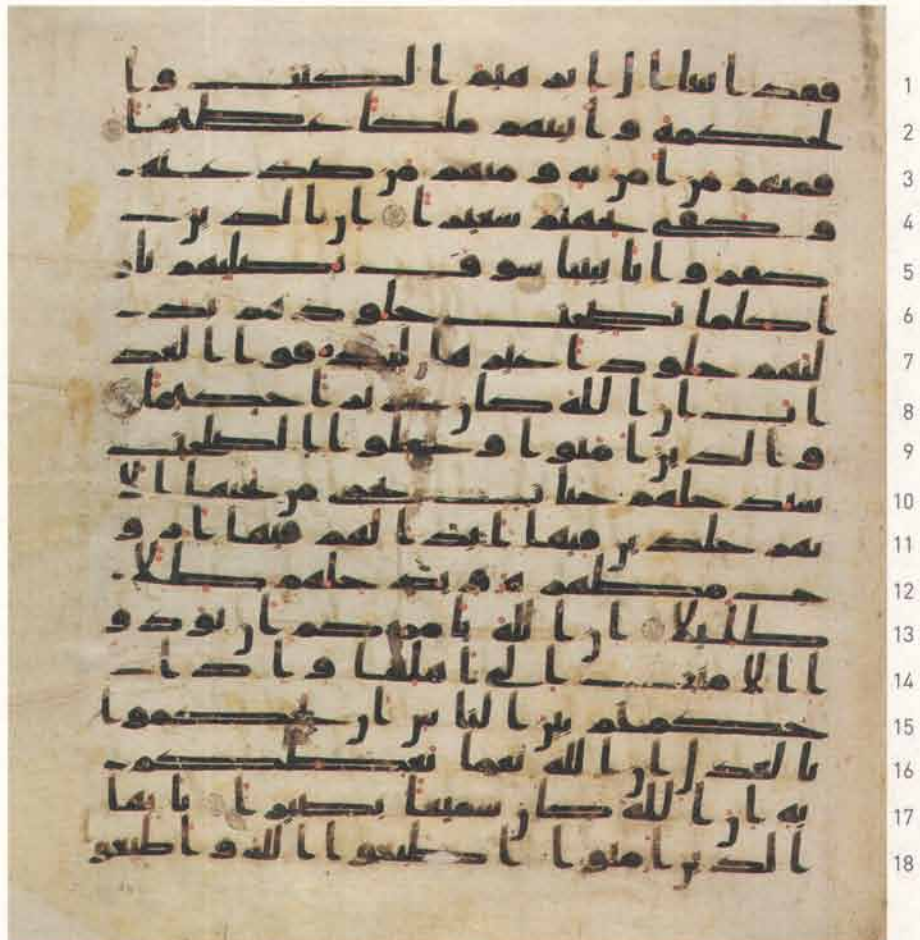 فقد اتينا ال ابرهيم الكتب وا 1
لحكمة واتينهم ملكا عظيما 2
فمنهم من امن به ومنهم من صد عنه 3
وكفى بجهنم سعيرا ان الذين 4
كفروا بايتنا سوف نصليهم نار 5
ا كلما نضجت جلودهم بد 6
لنهم جلودا غيرها ليذوقوا العذ 7
اب ان الله كان عزيزا حكيما 8
والذين امنوا وعملوا الصلحت 9
سندخلهم جنت تجري من تحتها الا 10
نهر خلدين فيها ابدا لهم فيها ازو 11
ج مطهرة وندخلهم ظلا 12
ظليلا ان الله يامركم ان تودو 13
ا الامنت الى اهلها واذا 14
حكمتم بين الناس ان تحكموا 15
بالعدل ان الله نعما يعظكم 16
به ان الله كان سميعا بصيرا يايها 17
الذين امنوا اطيعوا الله واطيعو 18